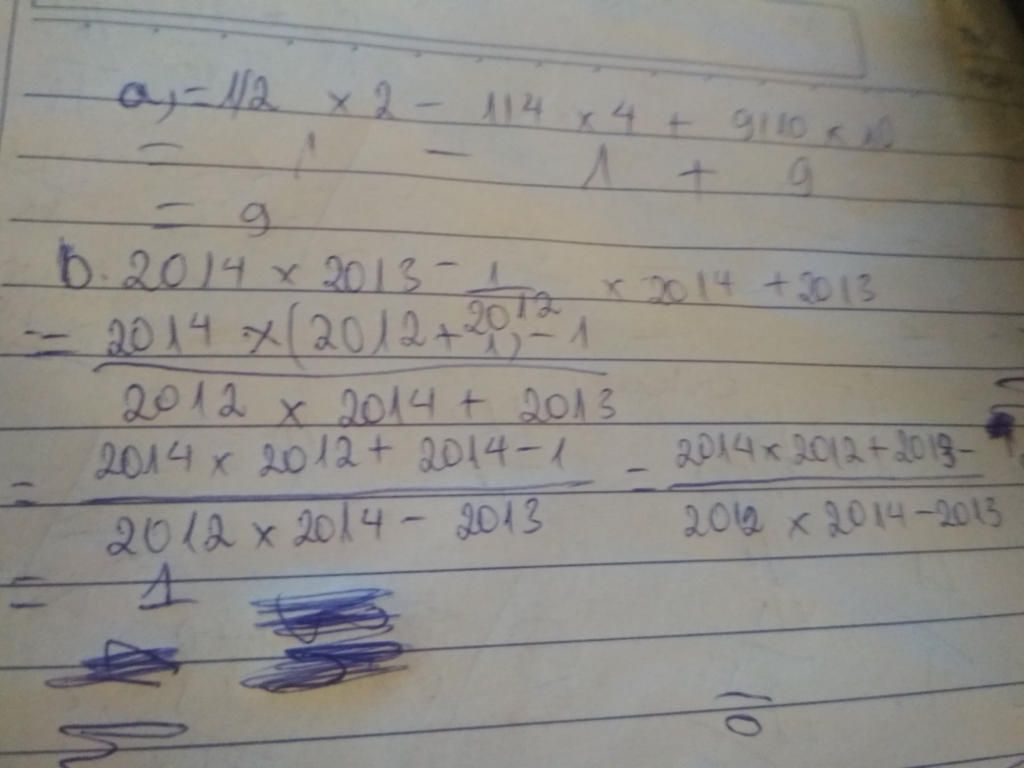 a, = 1/2 × 2 - 1/4 × 4 + 9/10 × 10
= 1 - 1 + 9
= 9
b. 2014 × 2013 - 1/2012 × 2014 + 2013
= 2014 × (2012 + 1) - 1
2012 × 2014 + 2013
= 2014 × 2012 + 2014 - 1 = 2014 × 2012 + 2013 -
2012 × 2014 - 2013 2012 × 2014 - 2013
= 1